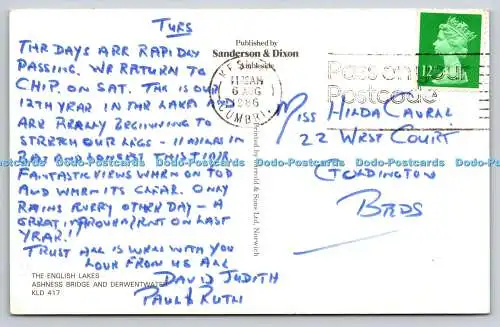 TUES
THE DAYS ARE RAPIDAY
PASSING. WE RETURN TO
CHIP. ON SAT. THIS IS OUR
12TH YEAR IN THE LAKES AND
ARE REALLY BEGINNING TO
STRETCH OUR LEGS - 11 MILES IN
FANTASTIC VIEWS WHEN ON TOP
AND WHEN ITS CLEAR. ONLY
RAINS EVERY OTHER DAY - A
GREAT IMPROVEMENT ON LAST
YEAR!
TRUST ALL IS WELL WITH YOU
LOVE FROM US ALL
DAVID JUDITH
PAUL & RUTH
THE ENGLISH LAKES
ASHNESS BRIDGE AND DERWENTWATER
KLD 417
Published by
Sanderson & Dixon
Ambleside
Printed by Jarrold & Sons Ltd, Norwich
KESWICK
11 15AM
6 AUG
1986
CUMBRIA
Pass on your
Postcode
12
MISS HILDA CAVRAL
22 WEST COURT
GOLDINGTON
BEDS
Dodo-Postcards Dodo-Postcards Dodo-Postcards Dodo-Postcards Dodo-Postcards Dodo-Postcards